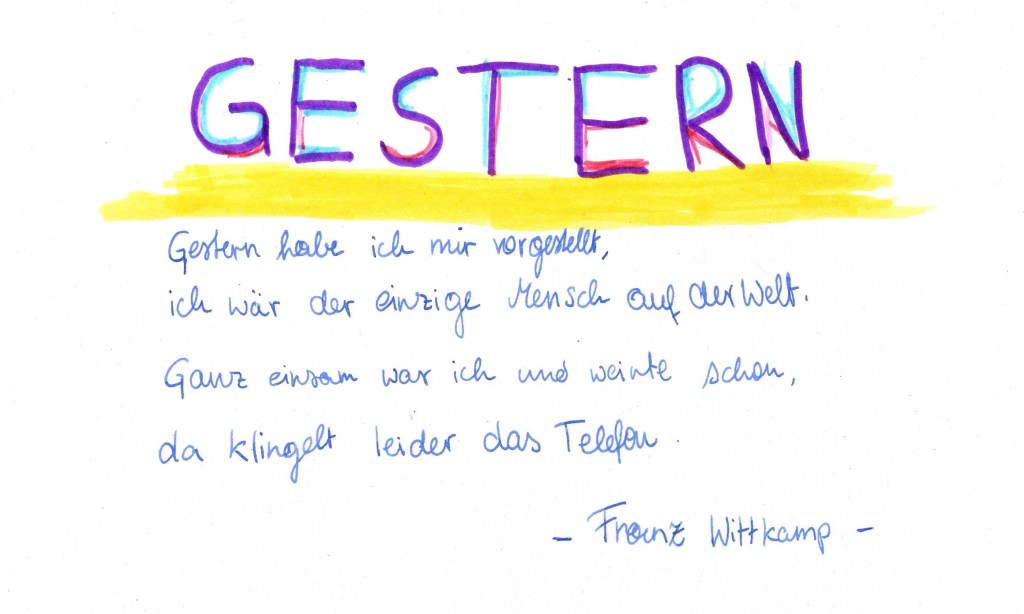 GESTERN
Gestern habe ich mir vorgestellt,
ich wär der einzige Mensch auf der Welt.
Ganz einsam war ich und weinte schon,
da klingelt leider das Telefon.
- Franz Wittkamp -